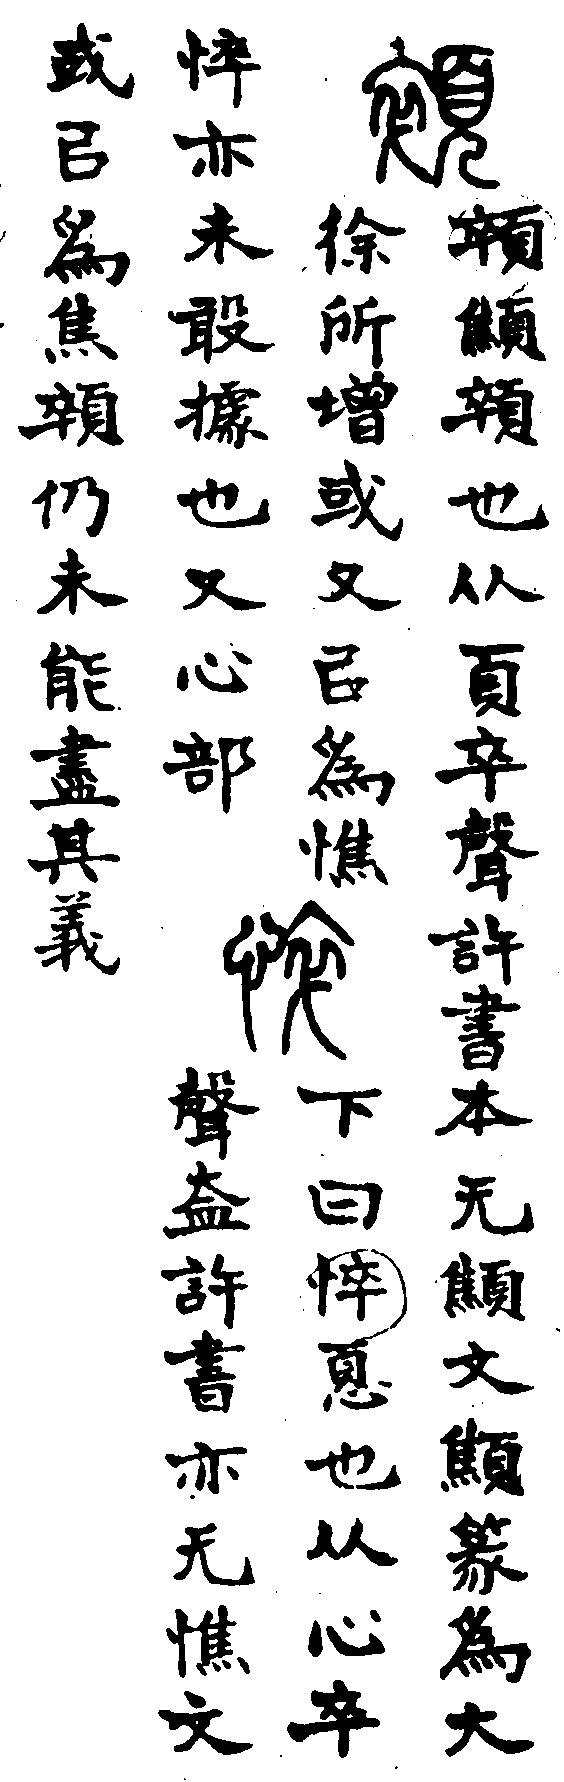 顇
顇顦顇也从頁卒聲許書本无顦文顦篆爲大
徐所增或又㠯爲憔
悴亦未敢據也又心部
悴
下曰悴𢝊也从心卒
聲盇許書亦无憔文
或㠯爲焦顇仍未能盡其義